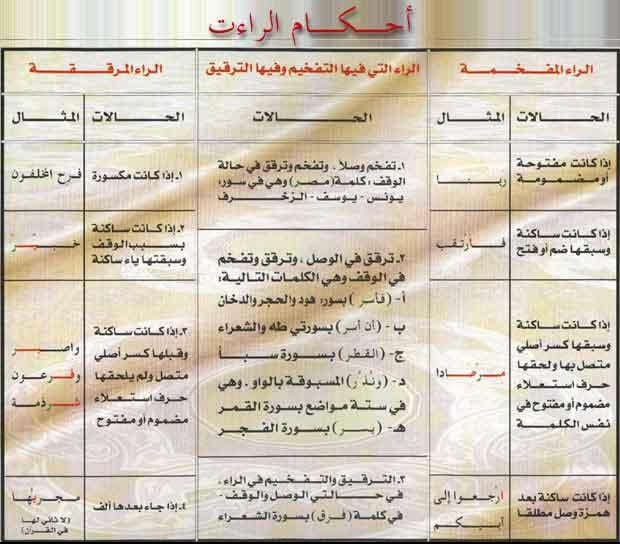 أحكام الراءت
الراء المفخمة
الحالات
المثال
إذا كانت مفتوحة
أو مضمومة
ربنا
إذا كانت ساكنة
وسبقها ضم أو فتح
فارتقب
إذا كانت ساكنة
وسبقها كسر أصلي
متصل بها ولحقها
حرف استعلاء
مضموم أو مفتوح في
نفس الكلمة
مرصادا
إذا كانت ساكنة بعد
همزة وصل مطلقا
ارجعوا إلى
أبيكم
الراء التي فيها التفخيم وفيها الترقيق
الحالات
١. تفخم وصلاً ، وتفخم وترقق في حالة
الوقف : كلمة (مصر) وهي في سور:
يونس - يوسف - الزخرف
٢. ترقق في الوصل ، وترقق وتفخم
في الوقف وهي الكلمات التالية:
أ- (فأسر) بسور: هود والحجر والدخان
ب - (أن أسر) بسورتي طه والشعراء
ج- (القطر) بسورة سبأ
د- (ونذر) المسبوقة بالواو. وهي
في ستة مواضع بسورة القمر
هـ- (يسر) بسورة الفجر
٣. الترقيق والتفخيم في الراء ،
في حالتي الوصل والوقف -
في كلمة (فرق) بسورة الشعراء
الراء المرققة
الحالات
المثال
١. إذا كانت مكسورة
فرح المخلفون
٢. إذا كانت ساكنة
بسبب الوقف
وسبقتها ياء ساكنة
خبير
٣. إذا كانت ساكنة
وقبلها كسر أصلي
متصل ولم يلحقها
حرف استعلاء
مضموم أو مفتوح
واصبر
وفرعون
شرذمة
٤. إذا جاء بعدها ألف
مجريها
(لا ثاني لها
في القرآن)